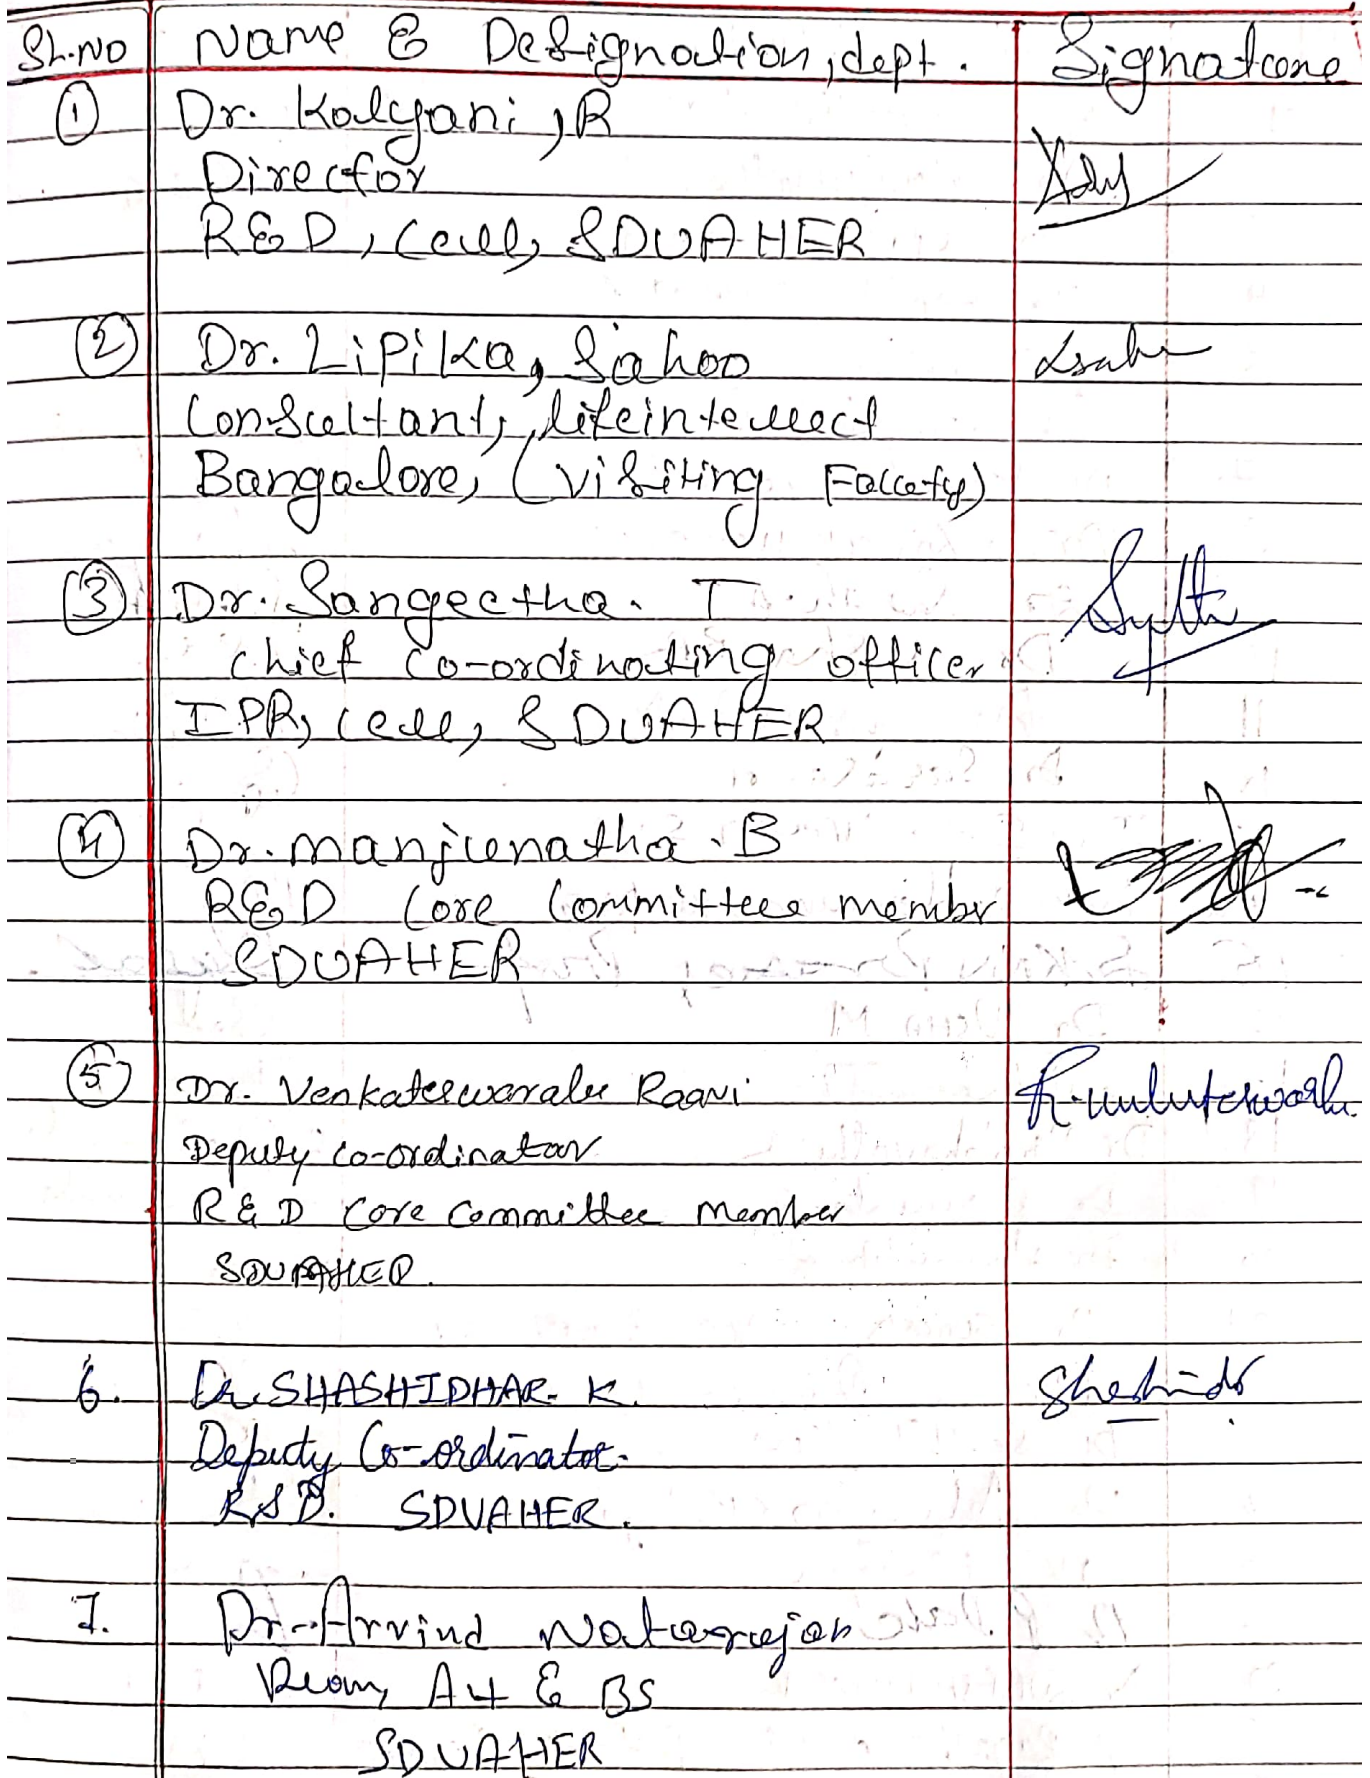 Sl.No Name & Designation, dept. Signature
1 Dr. Kalyani, R
Director
R&D, Cell, SDUAHER
2 Dr. Lipika, Sahoo
Consultant, lifeintellect
Bangalore, (Visiting Faculty)
3 Dr. Sangeetha. T
Chief Co-ordinating officer
IPR, Cell, SDUAHER
4 Dr. Manjunatha. B
R&D Core Committee member
SDUAHER
5 Dr. Venkateswaralu Raavi
Deputy Co-ordinator
R & D Core Committee Member
SDUAHER.
6. Dr. SHASHIDHAR. K. Shashidr
Deputy Co-ordinator.
R&D. SDUAHER.
7. Dr. Arvind Natarajan
Dean, AH & BS
SDUAHER